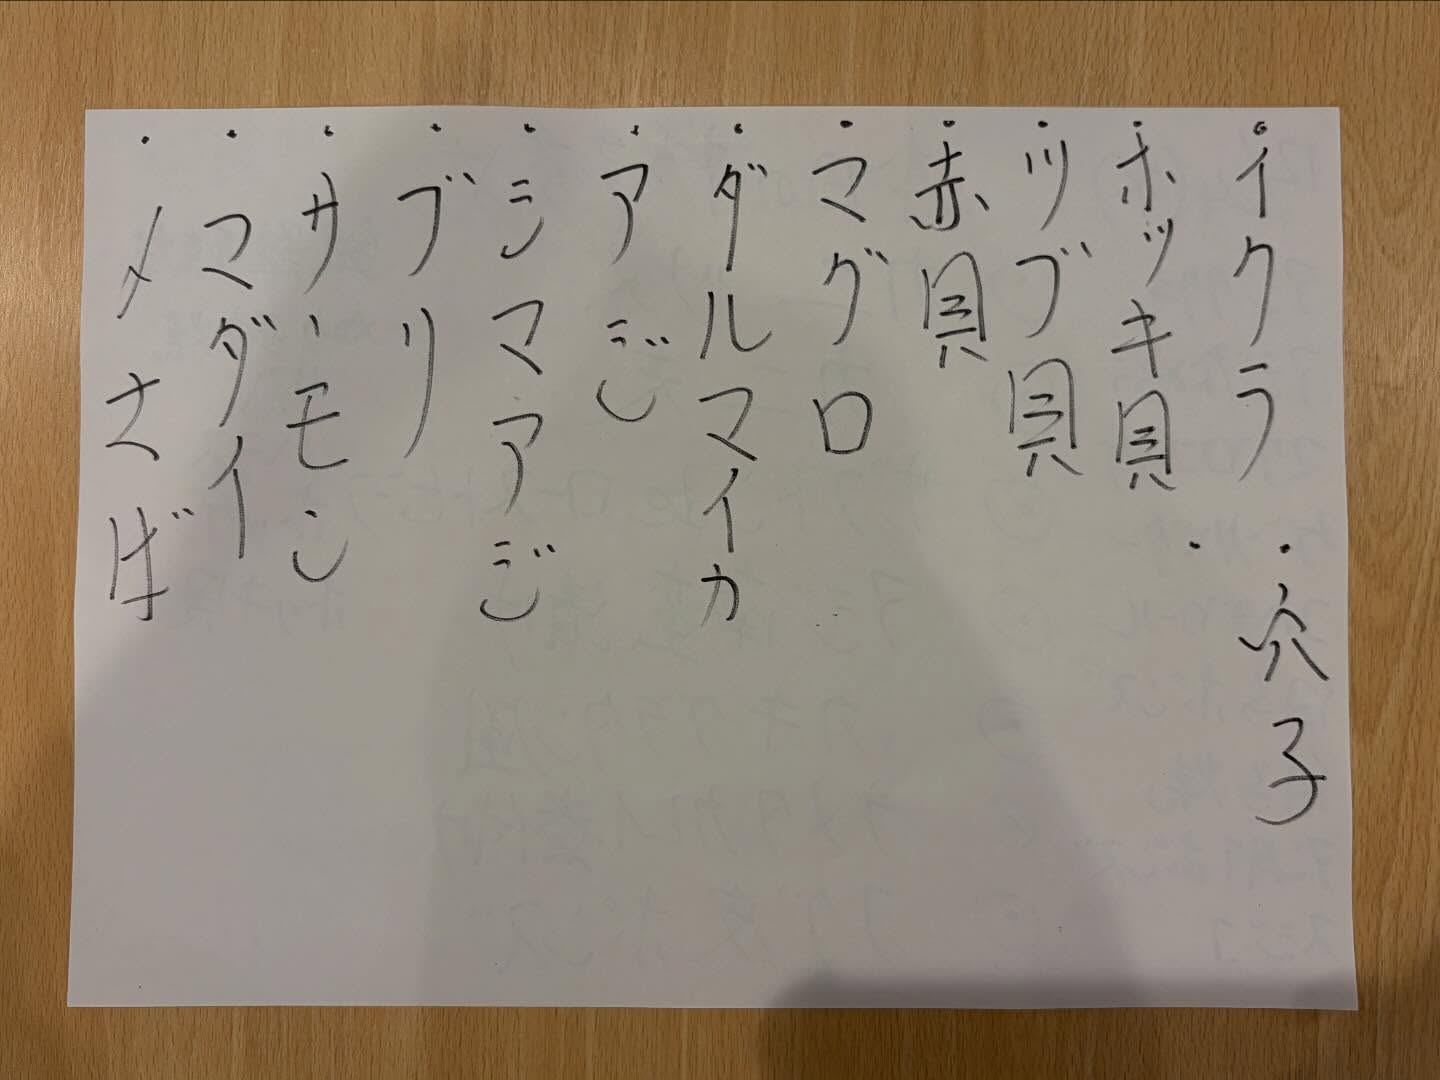 ・イクラ
・ホッキ貝
・ツブ貝
・赤貝
・マグロ
・ダルマイカ
・アジ
・シマアジ
・ブリ
・サーモン
・マダイ
・メさば
・穴子
・